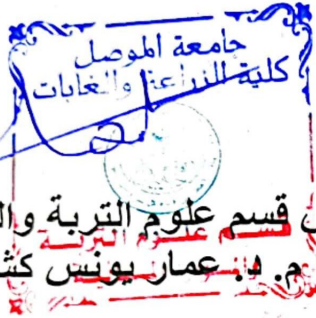 جامعة الموصل
كلية الزراعة والغابات
قسم علوم التربة وال
قسم علوم التربة
م. د. عمار يونس كش